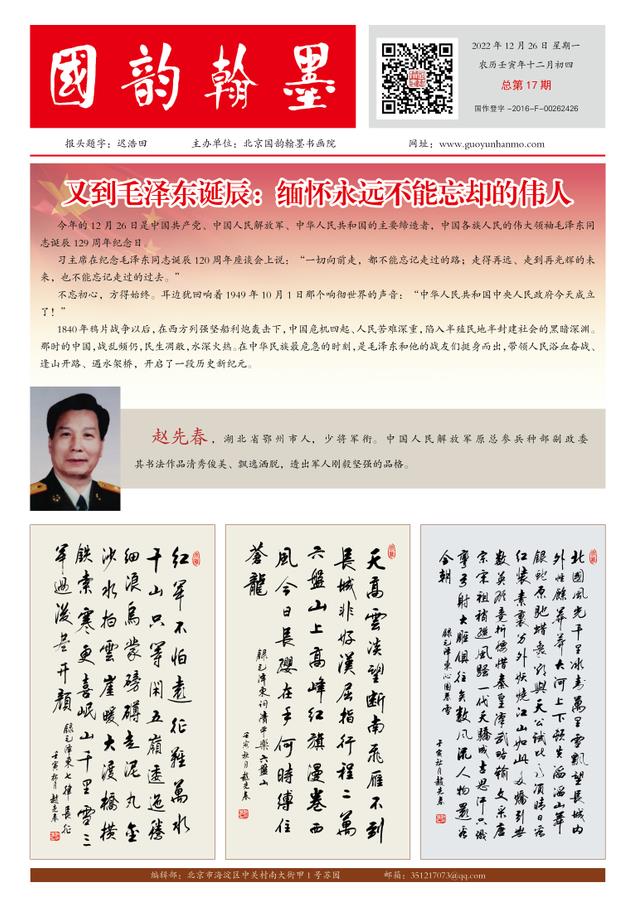 國韵翰墨
2022年12月26日 星期一
农历壬寅年十二月初四
总第17期
国作登字-2016-F-00262426
报头题字：迟浩田 主办单位：北京国韵翰墨书画院 网址：www.guoyunhanmo.com
又到毛泽东诞辰：缅怀永远不能忘却的伟人
今年的12月26日是中国共产党、中国人民解放军、中华人民共和国的主要缔造者，中国各族人民的伟大领袖毛泽东同
志诞辰129周年纪念日。
习主席在纪念毛泽东同志诞辰120周年座谈会上说：“一切向前走，都不能忘记走过的路；走得再远、走到再光辉的未
来，也不能忘记走过的过去。”
不忘初心，方得始终。耳边犹回响着1949年10月1日那个响彻世界的声音：“中华人民共和国中央人民政府今天成立
了！”
1840年鸦片战争以后，在西方列强坚船利炮轰击下，中国危机四起、人民苦难深重，陷入半殖民地半封建社会的黑暗深渊。
那时的中国，战乱频仍，民生凋敝，水深火热。在中华民族最危急的时刻，是毛泽东和他的战友们挺身而出，带领人民浴血奋战、
逢山开路、遇水架桥，开启了一段历史新纪元。
赵先春，湖北省鄂州市人，少将军衔。中国人民解放军原总参兵种部副政委
其书法作品清秀俊美、飘逸洒脱，透出军人刚毅坚强的品格。
紅軍不怕遠征難萬水
千山只等閑五嶺逶迤騰
細浪烏蒙磅礴走泥丸金
沙水拍雲崖暖大渡橋橫
鐵索寒更喜岷山千里雪三
軍過後盡開顏
錄毛澤東七律長征
壬寅秋月趙先春
天高雲淡望斷南飛雁不到
長城非好漢屈指行程二萬
六盤山上高峰紅旗漫卷西
風今日長纓在手何時縛住
蒼龍
錄毛澤東詞清平樂六盤山
壬寅秋月趙先春
北國風光千里冰封萬里雪飄望長城內
外惟餘莽莽大河上下頓失滔滔山舞
銀蛇原馳蠟象欲與天公試比高須晴日看
紅裝素裹分外妖嬈江山如此多嬌引無
數英雄競折腰惜秦皇漢武略輸文采唐
宗宋祖稍遜風騷一代天驕成吉思汗只識
彎弓射大雕俱往矣數風流人物還看
今朝
錄毛澤東沁園春雪
壬寅秋月趙先春
编辑部：北京市海淀区中关村南大街甲1号苏园 邮箱：351217073@qq.com